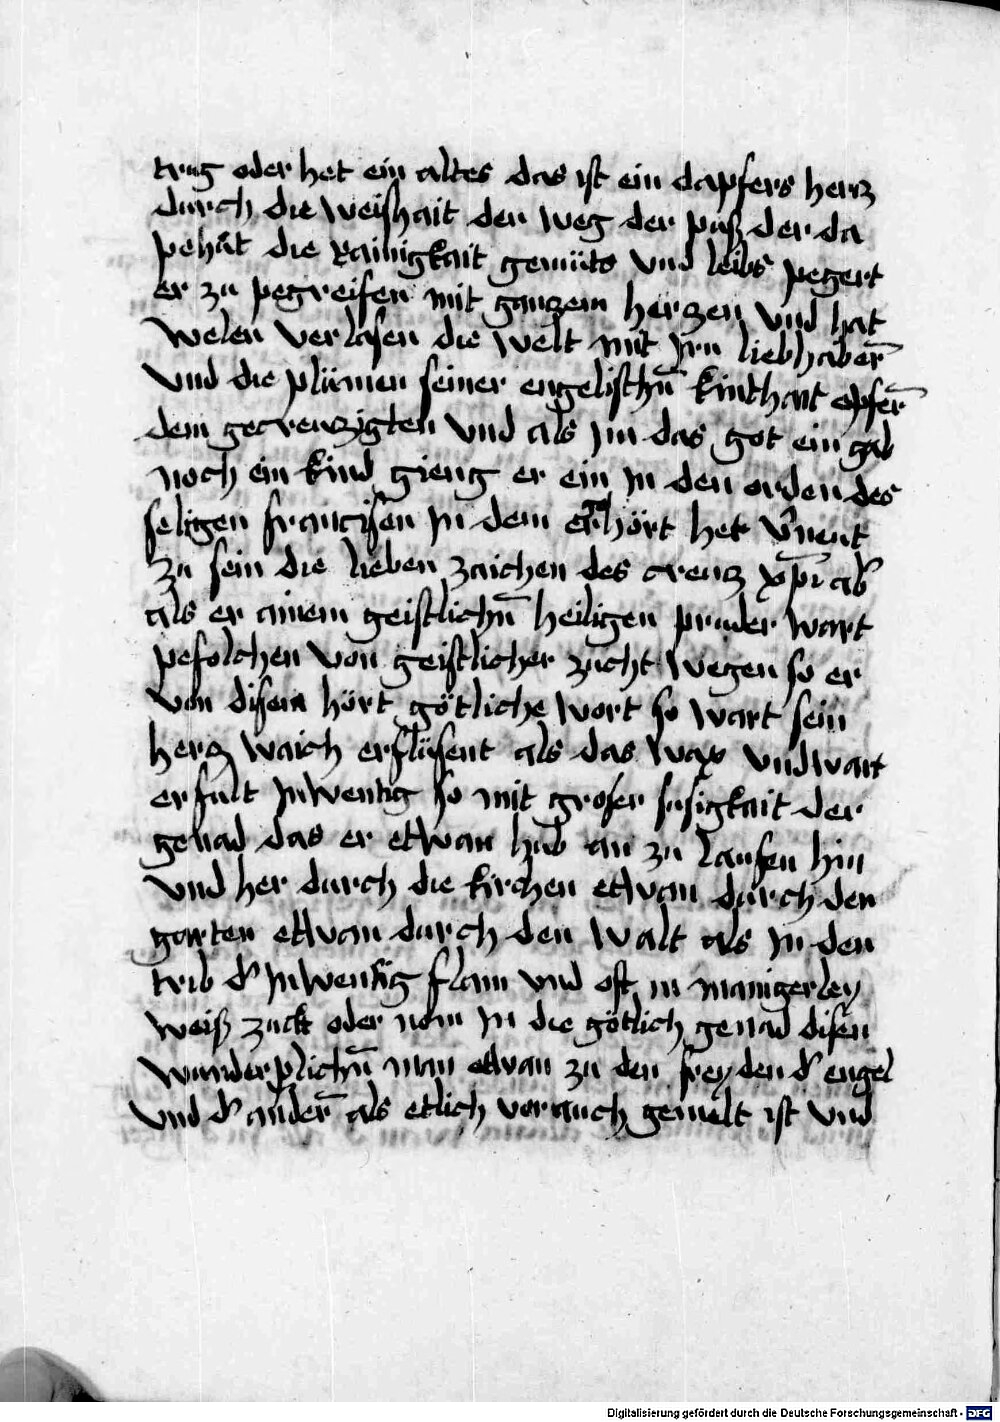 trug oder het ein altes das ist ein dapfers herz
durch die weishait den weg der puß der da
pehüt die rainigkait gemüts und leibs pegert
er zu pegreifen mit ganzem herzen und hat
welen verlasen die welt mit jrn liebhaberñ
und die plümen seiner engelischñ kinthait opferñ
dem gecreuzigten und als jm das got ein gab
noch ein kind gieng er ein in den orden des
seligen francisen jn dem er gehört het v̓neut
zu sein die lieben zaichen des creuz xp̄i ab̓
als er ainem geistlichñ heiligen pruder wart
pefolchen von geistlicher zucht wegen so er
von disem hört götliche wort so wart sein
herz waich erflüsent als das wax und wart
erfült jnwentig so mit groser susigkait der
genad das er etwan hub an zu laufen hin
und her durch die kirchen etwan durch den
garten etwan durch den walt als jn den
trib d̓ jnwentig flam und oft in manigerley
weiß zuckt oder nom jn die götlich genad disen
wunderplichñ man etwan zu den freyden d̓ engel
und d̓ anderñ als etlich vorauch gemelt ist und
Digitalisierung gefördert durch die Deutsche Forschungsgemeinschaft - DFG